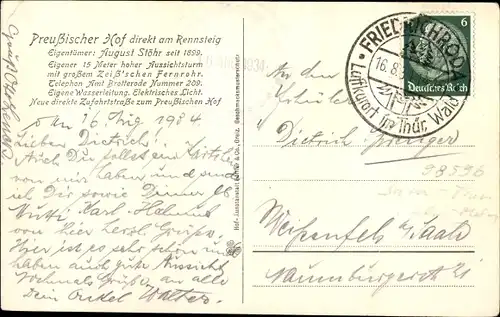 Preußischer Hof direkt am Rennsteig
Eigentümer: August Stöhr seit 1899.
Eigener 15 Meter hoher Aussichtsturm
mit großem Zeiß'schen Fernrohr.
Telephon Amt Brotterode Nummer 209.
Eigene Wasserleitung. Elektrisches Licht.
Neue direkte Zufahrtstraße zum Preußischen Hof
16 Aug 1934
Lieben Dietrich!
Auch Du sollst
von mir haben und
ich Dir sowie Deiner lb
Mutti Karl, Helmut
von hier herzl. Grüße.
Hier ist es sehr schön und
haben auch gute Aussicht
Nochmals Grüße an alle
Dein Onkel Walter.
FRIEDRICHRODA
16.8.
Luftkurort im Thür. Wald
6
Deutsches Reich
An den
Schüler
Dietrich
98596
Weißenfels a/Saale
Naumburgerstr 21